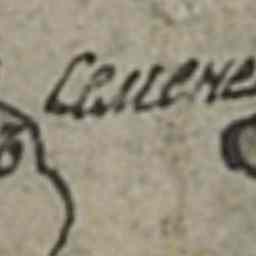 Семене